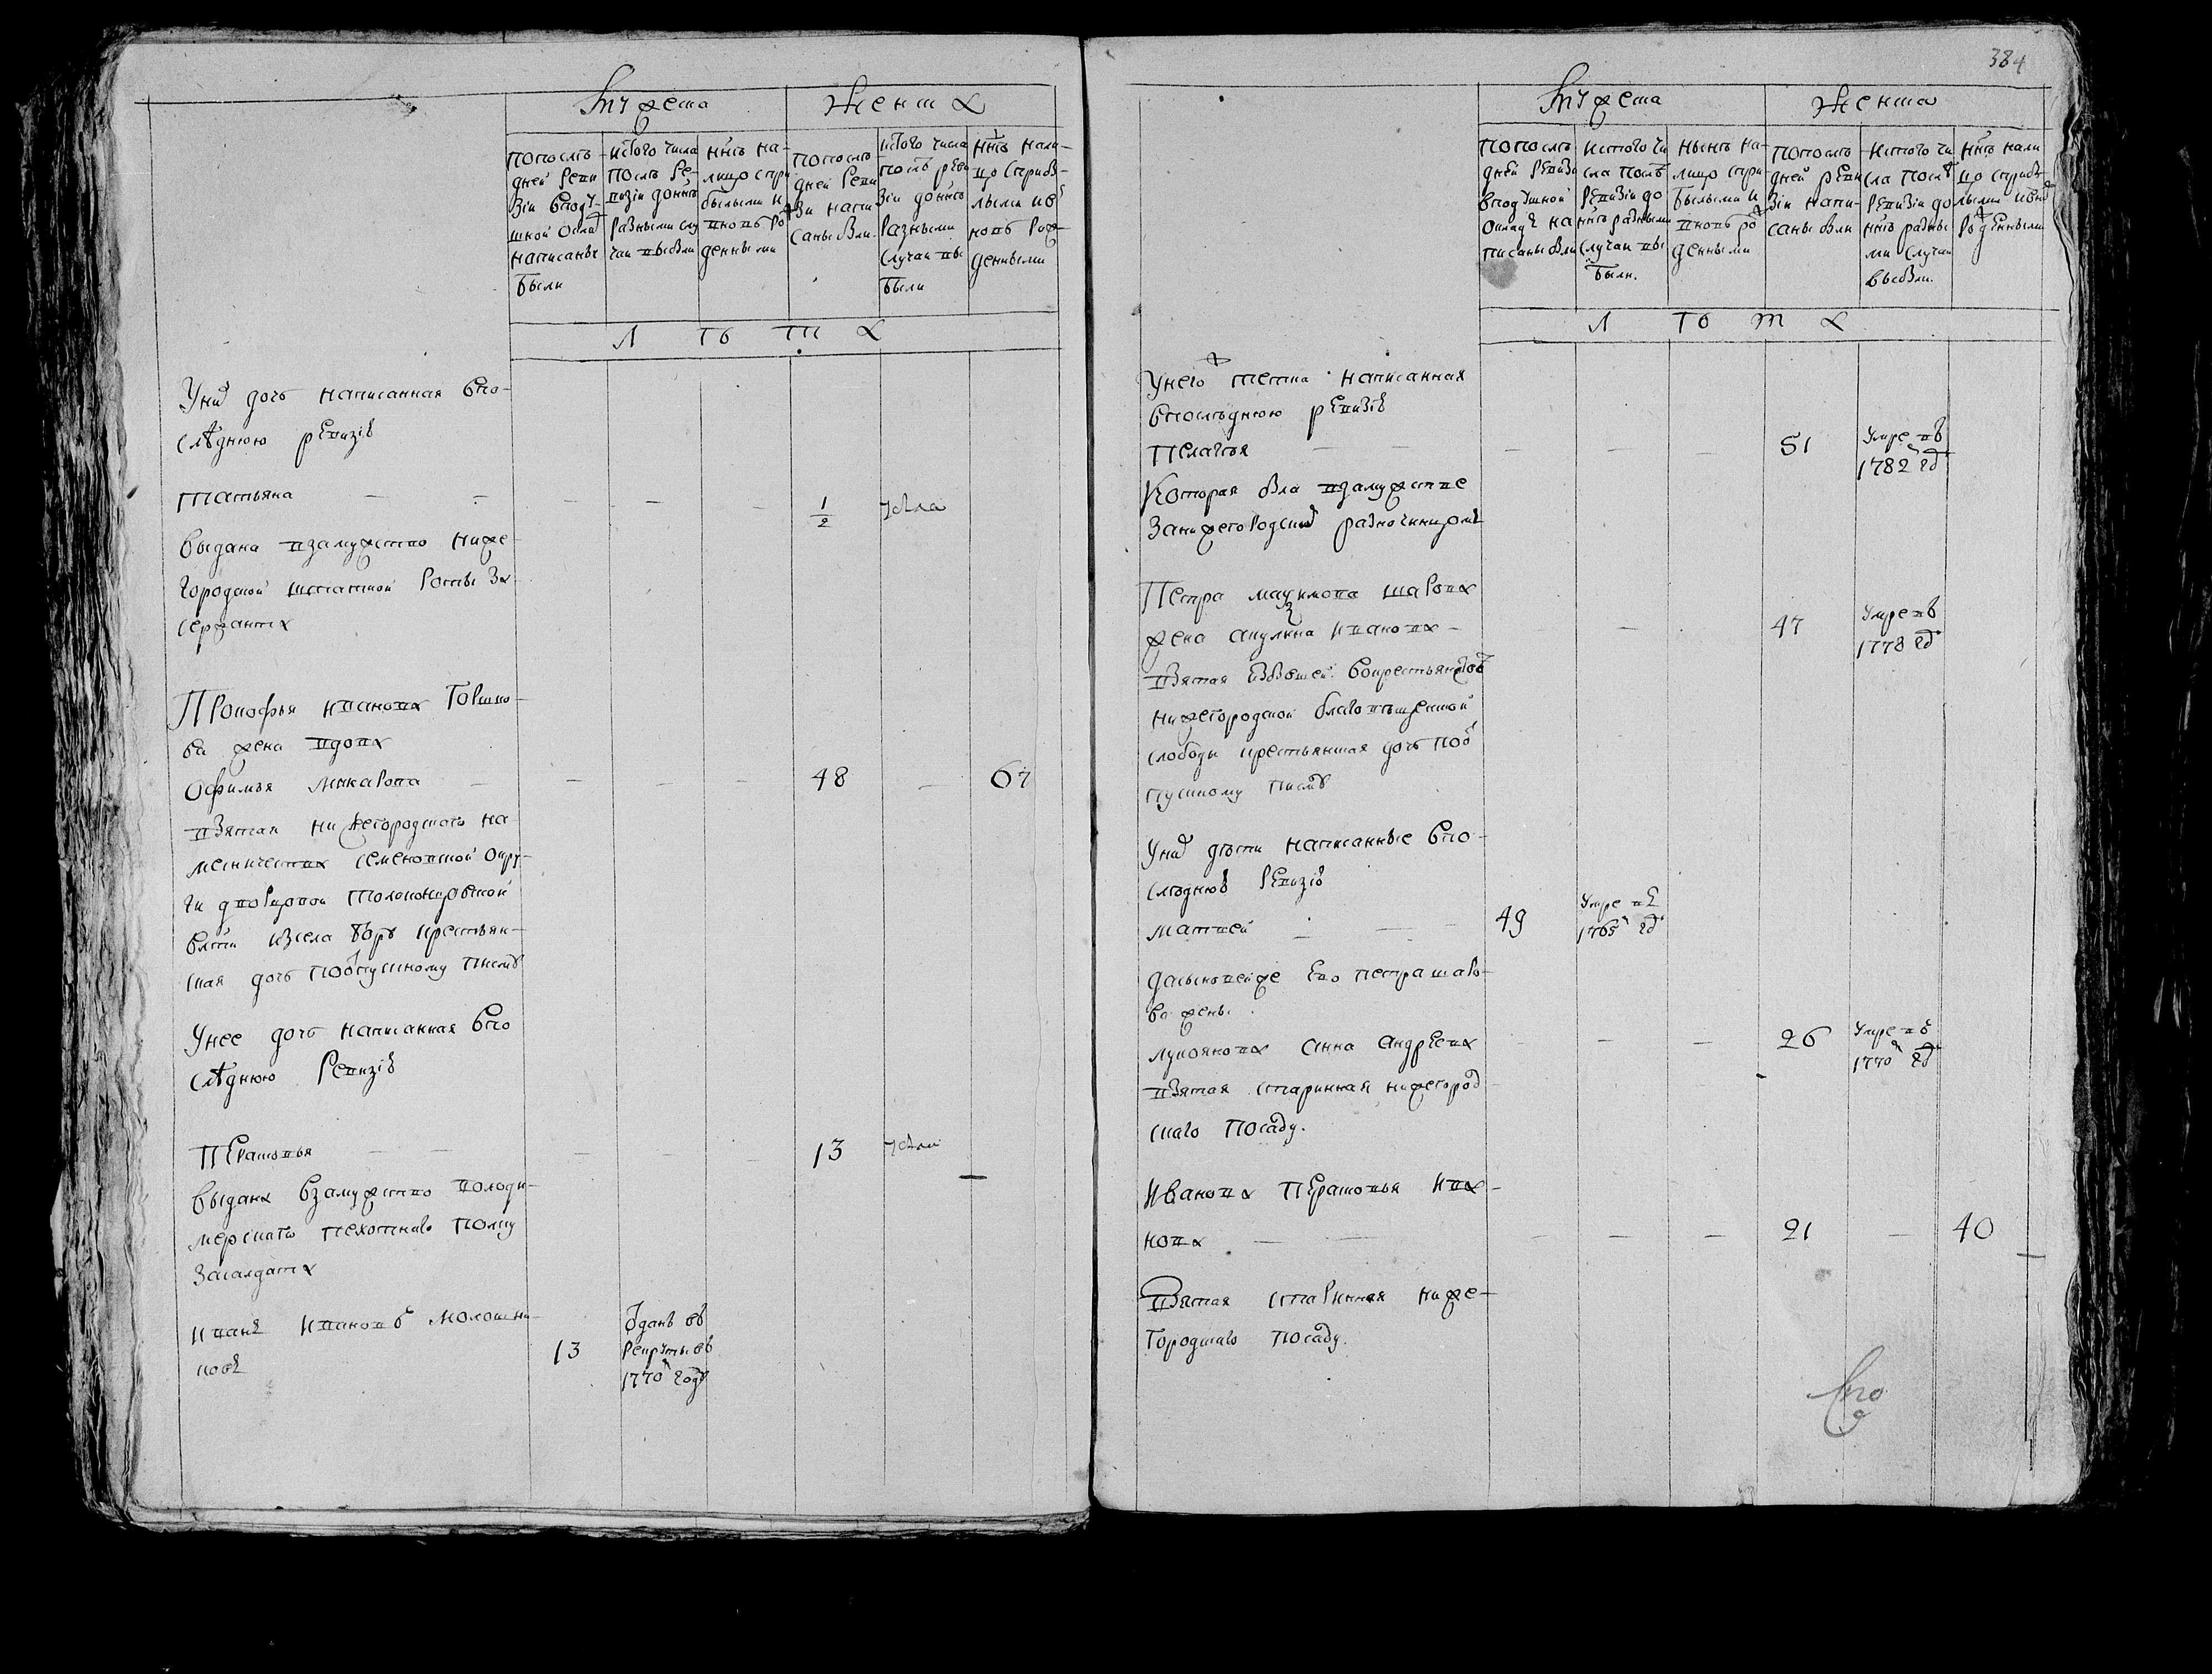 Мужеска
Женска
попослѣ-
дней реви
зіи вподу-
шной окла
написаны
были
истого числа
послѣ ре-
визіи донн̃ѣ
разными слу
чаи выбыли
нн̃ѣ на-
лицо спри
былыми и
вновь ро
жденными
попослѣ
дней реви
зіи напи
саны были
истого числа
послѣ реви
зіи донн̃ѣ
разными
случаи вы
были
нн̃ѣ нали-
цо сприбы-
лыми и в
новь рож
денными
Л ѣ т а
Уний дочь написанная впо-
слѣднюю ревизію
Татьяна 1/2
выдана взамужство ниже-
городской штатной роты за
сержанта
Прокофья Иванова Горшко-
ва жена вдова
Офимья Макарова 48 67
взятая нижегородскаго на
месничества семеновской окру-
ги дворцовой Толоконцовской
влсти изсела Бору крестьян-
ская дочь поотпускному писму
Унее дочь написанная впо
слѣднюю ревизію
Парасковья 13
выдана взамужство володи-
мерскаго пехотнаго полку
засалдата
Иванъ Ивановъ Молошни-
ковъ 13 отданъ въ
рекруты въ
1770м году
384
Мужеска
Женска
попослѣ
дней ревизіи
вподушной
окладъ на
писаны были
истого чи
сла послѣ
ревизіи до
нн̃ѣ разными
случаи вы
были.
нынѣ на-
лицо спри
былыми и
вновь ро
жденными
попослѣ
дней реви
зіи напи-
саны были
истого чи
сла послѣ
ревизіи до
нн̃ѣ разны
ми случаи
выбыли.
нн̃ѣ нали
цо сприбы
лыми ивно
рожденными
Л ѣ т а
Унего ж тетка написанная
впослѣднюю ревизію
Пелагея 51 Умре въ
1782м гд
Которая была взамужстве
занижегородским разночинцомъ
Петра Максимова Шарова
жена Акулина Иванова 47 Умре въ
1778 гд
взятая избывшей вокрестьянствѣ
нижегородской благовѣщенской
слободы крестьянская дочь поот
пускному писму
Уних дѣти написанные впо-
слѣднюю ревизію
Матвей 49 Умре въ
1765м гд
дасыновейже ево Петра Шаро-
ва жены
Лукоянова Анна Андреева 26 Умре въ
1770м гд
взятая старинная нижегород
скаго посаду.
Иванова Парасковья Ива-
нова 21 40
Взятая старинная ниже-
городскаго посаду.